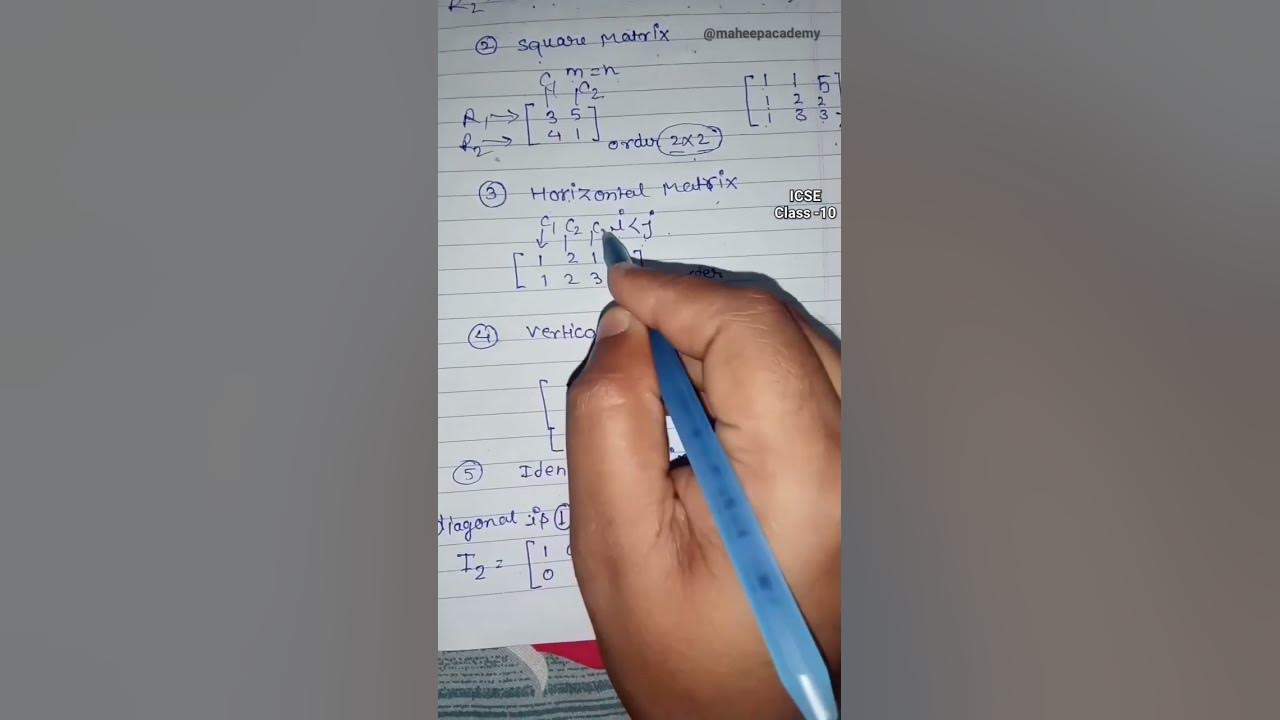 R2
② Square Matrix
@maheepacademy
m = n
C1 C2
R1→ [ 3 5
R2→ 4 1 ]
order 2×2
[ 1 1 5
1 2 2
1 3 3
③ Horizontal Matrix
ICSE
Class -10
C1 C2 C i < j
[ 1 2 1 ]
[ 1 2 3
④
⑤
diagonal is 1
I2 = [ 1
0